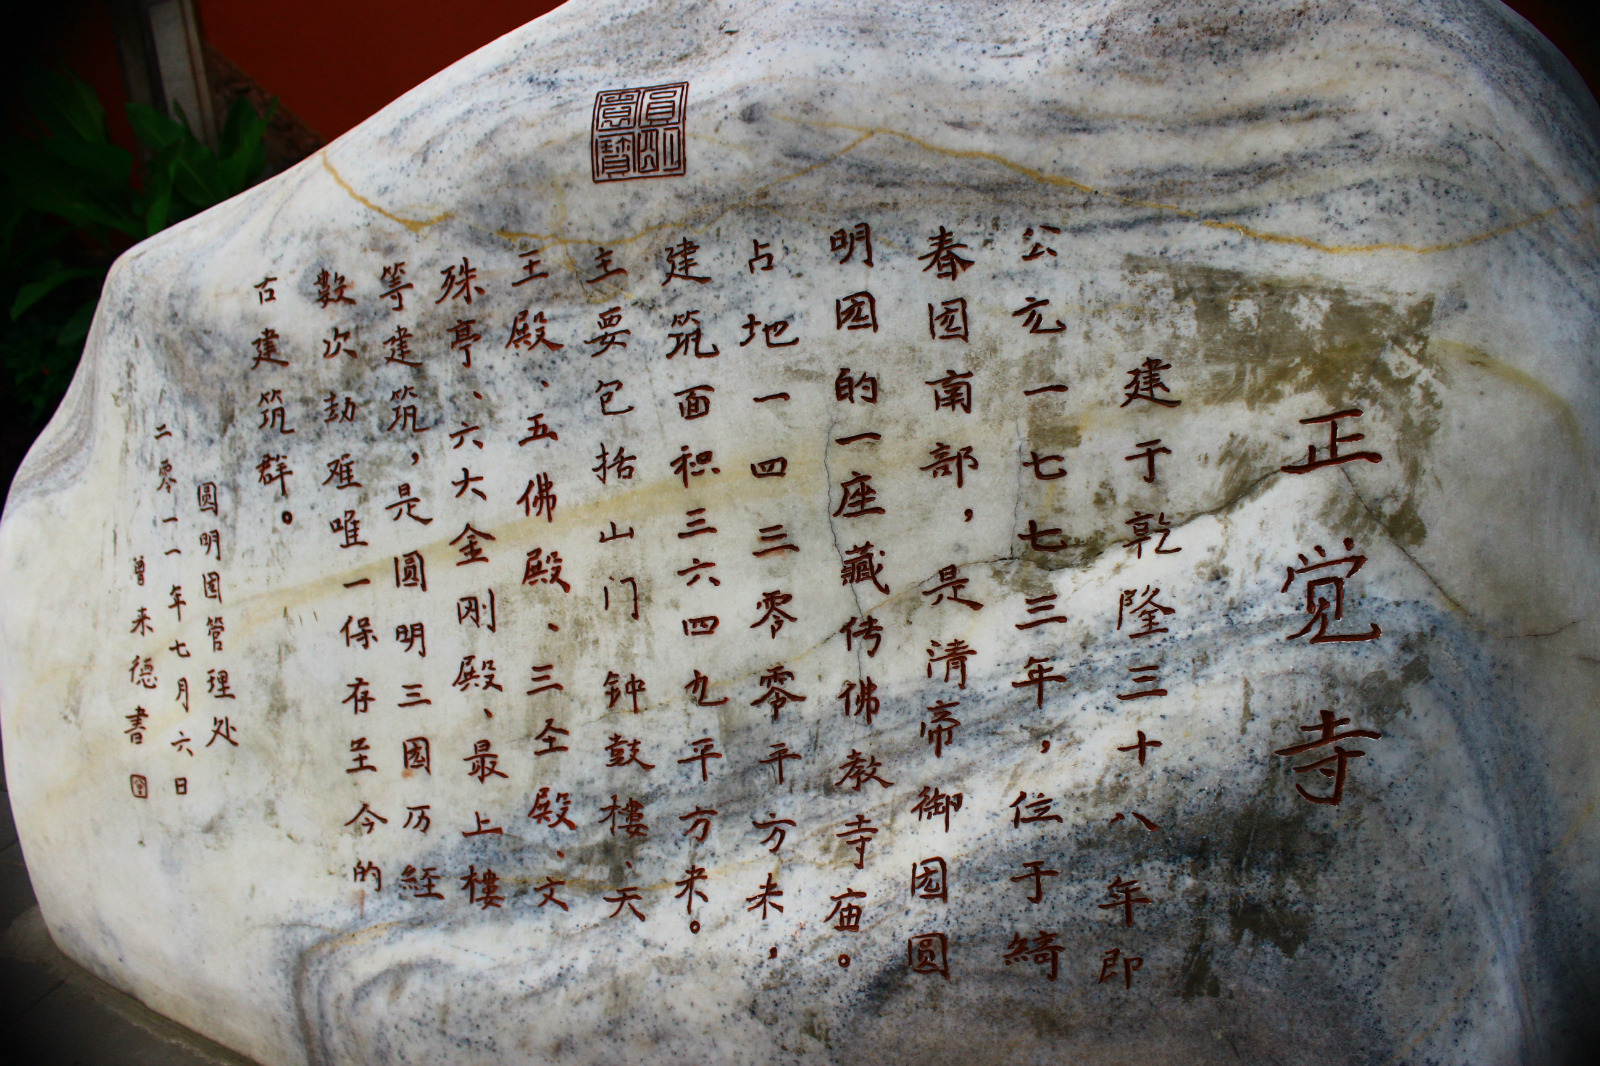 正觉寺
建于乾隆三十八年即
公元一七七三年，位于綺
春园南部，是清帝御园圆
明园的一座藏传佛教寺庙。
占地一四三零零平方米，
建筑面积三六四九平方米。
主要包括山门、钟鼓楼、天
王殿、五佛殿、三圣殿、文
殊亭、六大金刚殿、最上樓
等建筑，是圆明三园历经
数次劫难唯一保存至今的
古建筑群。
圆明园管理处
二零一一年七月六日
曾来德書